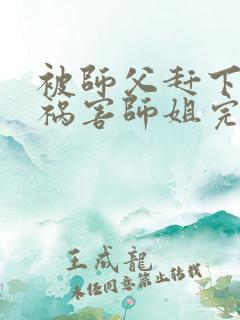 被師父赶下
祸害師姐完
王成龍
未经同意禁止转载